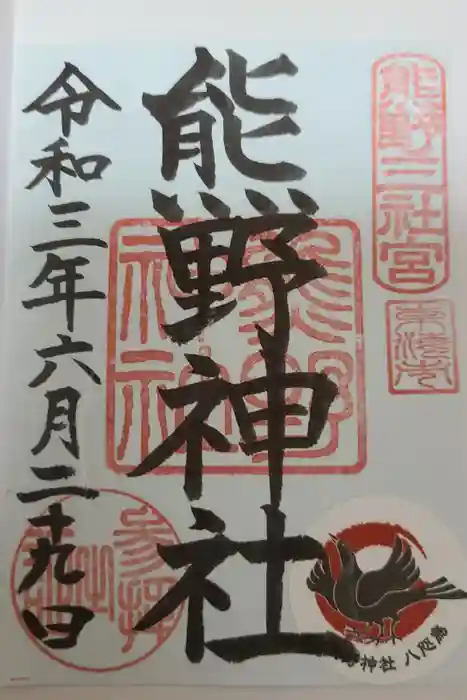 熊野三社宮
熊野神社
令和三年六月二十九日
参拝
神社 八咫烏